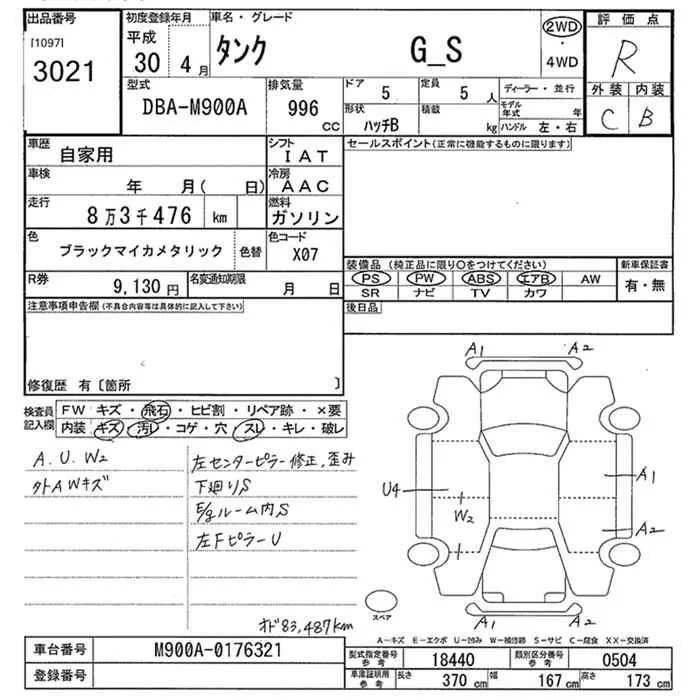 出品番号 初度登録年月 車名・グレード 評価点
[1097] 平成 タンク G_S 2WD
3021 30 4月 ・ R
4WD
型式 排気量 ドア 定員 ディーラー・並行 外装 内装
DBA-M900A 996 5 5 人 モデル年式 年 C B
cc 形状 ハッチB 積載 kg ハンドル 左・右
車歴 自家用 シフト IAT セールスポイント(正常に機能するものに限ります)
車検 年 月( 日) 冷房 AAC
走行 8万3千476 km 燃料 ガソリン
色 ブラックマイカメタリック 色替 色コード X07
装備品 (純正品に限り○をつけてください) 新車保証書
R券 9,130円 名変通知期限 月 日 PS PW ABS エアB AW 有・無
SR ナビ TV カワ
注意事項申告欄(不具合内容等は具体的に記入して下さい) 後日品
修復歴 有〔箇所 〕
A1 A2
検査員 FW キズ・飛石・ヒビ割・リペア跡・×要
記入欄 内装 キズ・汚レ・コゲ・穴・スレ・キレ・破レ
A.U.W2 左センターピラー修正,歪み
外AWキズ 下廻りS
E/gルーム内S
左FピラーU
U4 A1
W2 A2
スペア
オド83,487km A1 A2
A-キズ E-エクボ U-凹み W-補修跡 S-サビ C-腐食 XX-交換済
車台番号 M900A-0176321 型式指定番号 参考 18440 類別区分番号 参考 0504
登録番号 車庫証明用 参考 長さ 370 cm 幅 167 cm 高さ 173 cm